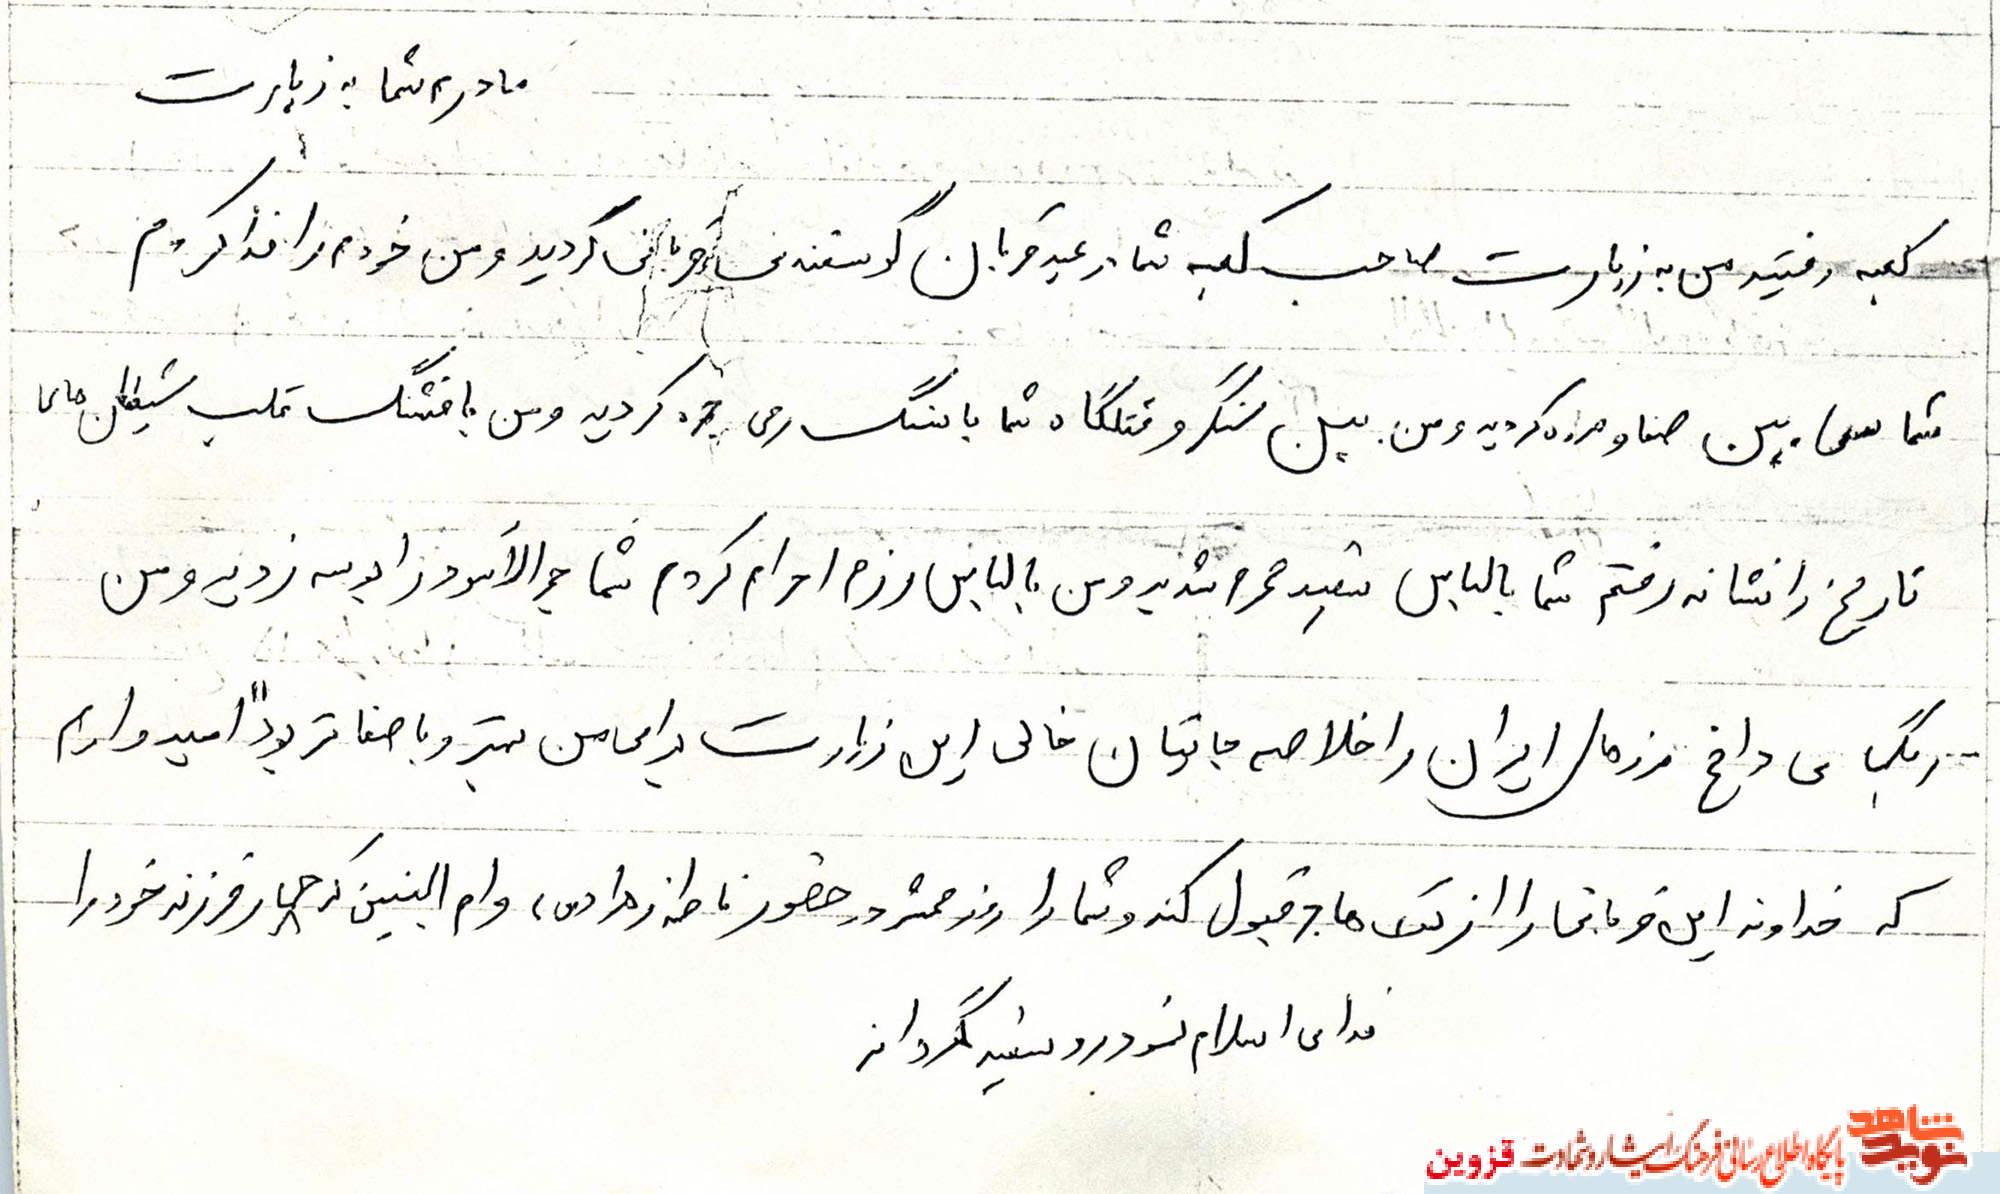 مادرم شما به زیارت
کعبه رفتید من به زیارت صاحب کعبه شما در عید قربان گوسفندی قربانی کردید و من خودم را فدا کردم
شما سعی بین صفا و مروه کردید و من بین سنگر و قتلگاه شما با سنگ رمی جمره کردید و من با فشنگ قلب شیطان های
تاریخ را نشانه رفتم شما با لباس سفید محرم شدید و من با لباس رزم احرام کردم شما حجرالاسود را بوسه زدید و من
ریگهای داغ مرزهای ایران را خلاصه جایتان خالی این زیارت برای من بهتر و باصفاتر بود" امیدوارم
که خداوند این قربانی را از تک حاجر قبول کند و شما را روز محشر در حضور فاطمه زهرا (س) و ام البنین که چهار فرزند خود را
فدای اسلام نمود رو سفید گرداند
نوید شاهد
پایگاه اطلاع رسانی فرهنگ ایثار و شهادت قزوین